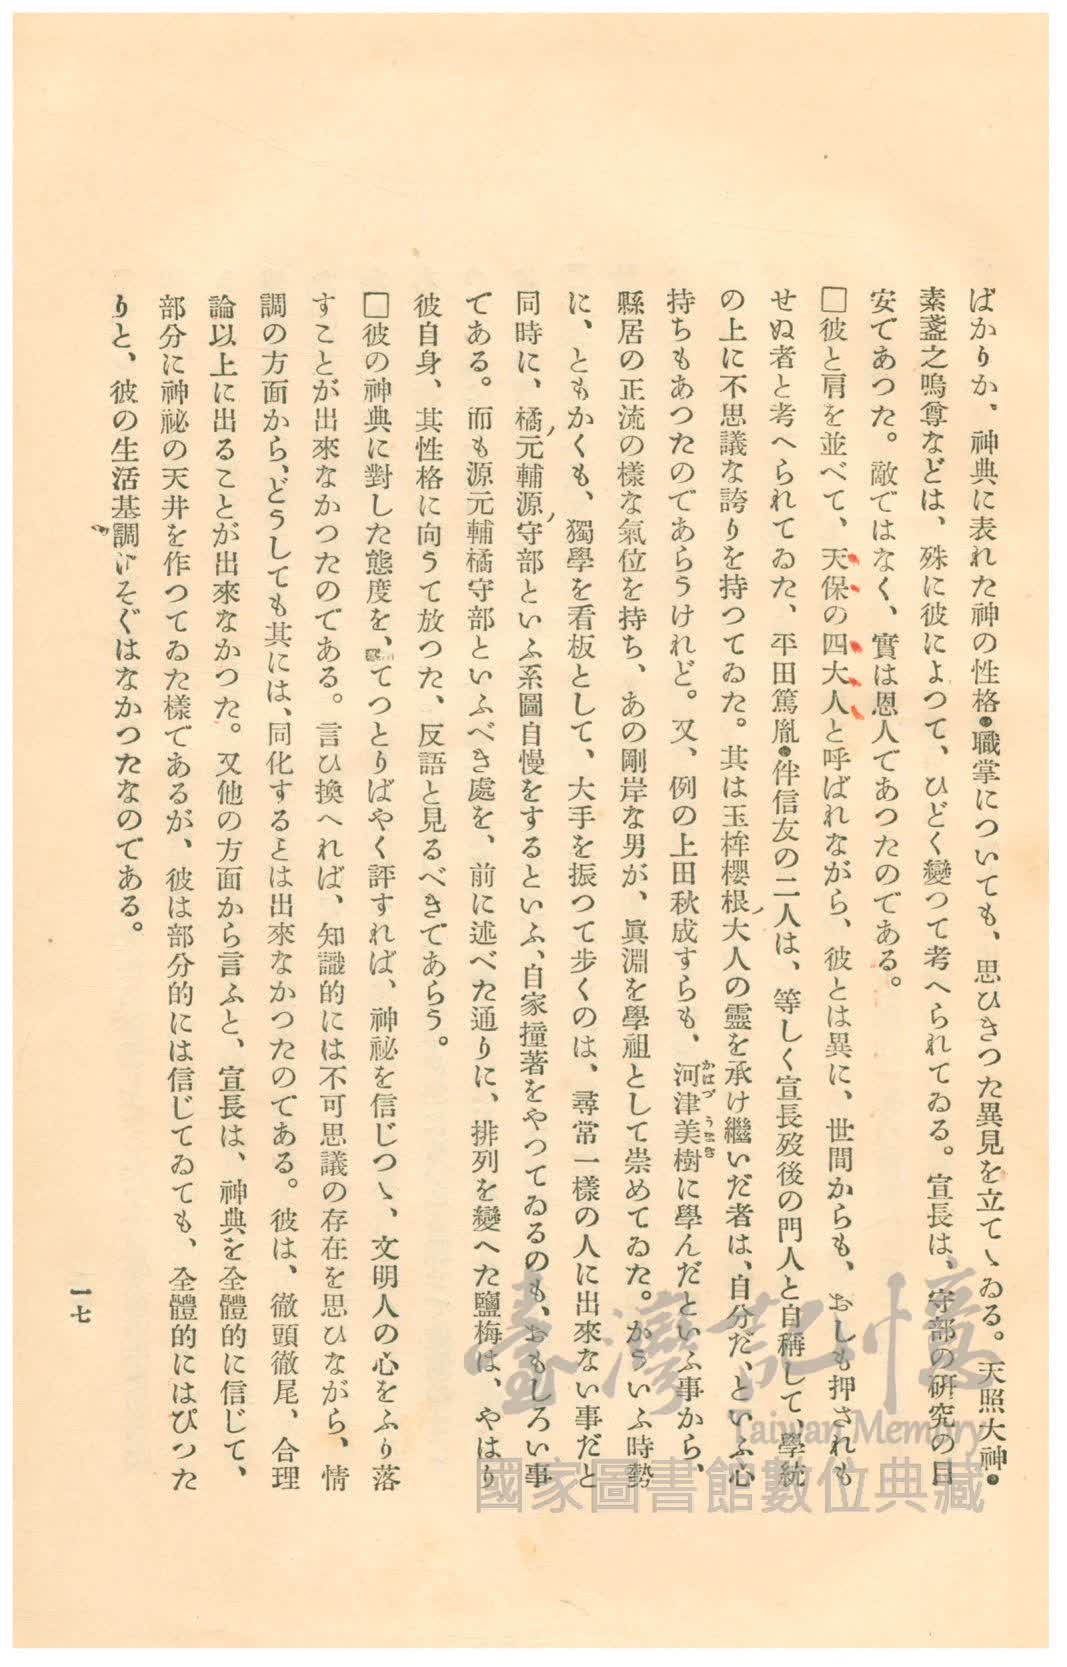 ばかりか、神典に表れた神の性格•職掌についても、思ひきつた異見を立てゝゐる。天照大神•
素盞之嗚尊などは、殊に彼によつて、ひどく變つて考へられてゐる。宣長は、守部の研究の目
安であつた。敵ではなく、實は恩人であつたのである。
□彼と肩を並べて、天保の四大人と呼ばれながら、彼とは異に、世間からも、おしも押されも
せぬ者と考へられてゐた、平田篤胤•伴信友の二人は、等しく宣長歿後の門人と自稱して、學統
の上に不思議な誇りを持つてゐた。其は玉桙櫻根大人の靈を承け繼いだ者は、自分だ、といふ心
持ちもあつたのであらうけれど。又、例の上田秋成すらも、河津美樹に學んだといふ事から、
縣居の正流の樣な氣位を持ち、あの剛岸な男が、眞淵を學祖として崇めてゐた。かういふ時勢
に、ともかくも、獨學を看板として、大手を振つて步くのは、尋常一樣の人に出來ない事だと
同時に、橘元輔源守部といふ系圖自慢をするといふ、自家撞著をやつてゐるのも、おもしろい事
である。而も源元輔橘守部といふべき處を、前に述べた通りに、排列を變へた鹽梅は、やはり
彼自身、其性格に向うて放つた、反語と見るべきであらう。
□彼の神典に對した態度を、てつとりばやく評すれば、神祕を信じつゝ、文明人の心をふり落
すことが出來なかつたのである。言ひ換へれば、知識的には不可思議の存在を思ひながら、情
調の方面から、どうしても其には、同化するとは出來なかつたのである。彼は、徹頭徹尾、合理
論以上に出ることが出來なかつた。又他の方面から言ふと、宣長は、神典を全體的に信じて、
部分に神祕の天井を作つてゐた樣であるが、彼は部分的には信じてゐても、全體的にはぴつた
りと、彼の生活基調にそぐはなかつたなのである。
一七
臺灣記憶
Taiwan Memory
國家圖書館數位典藏